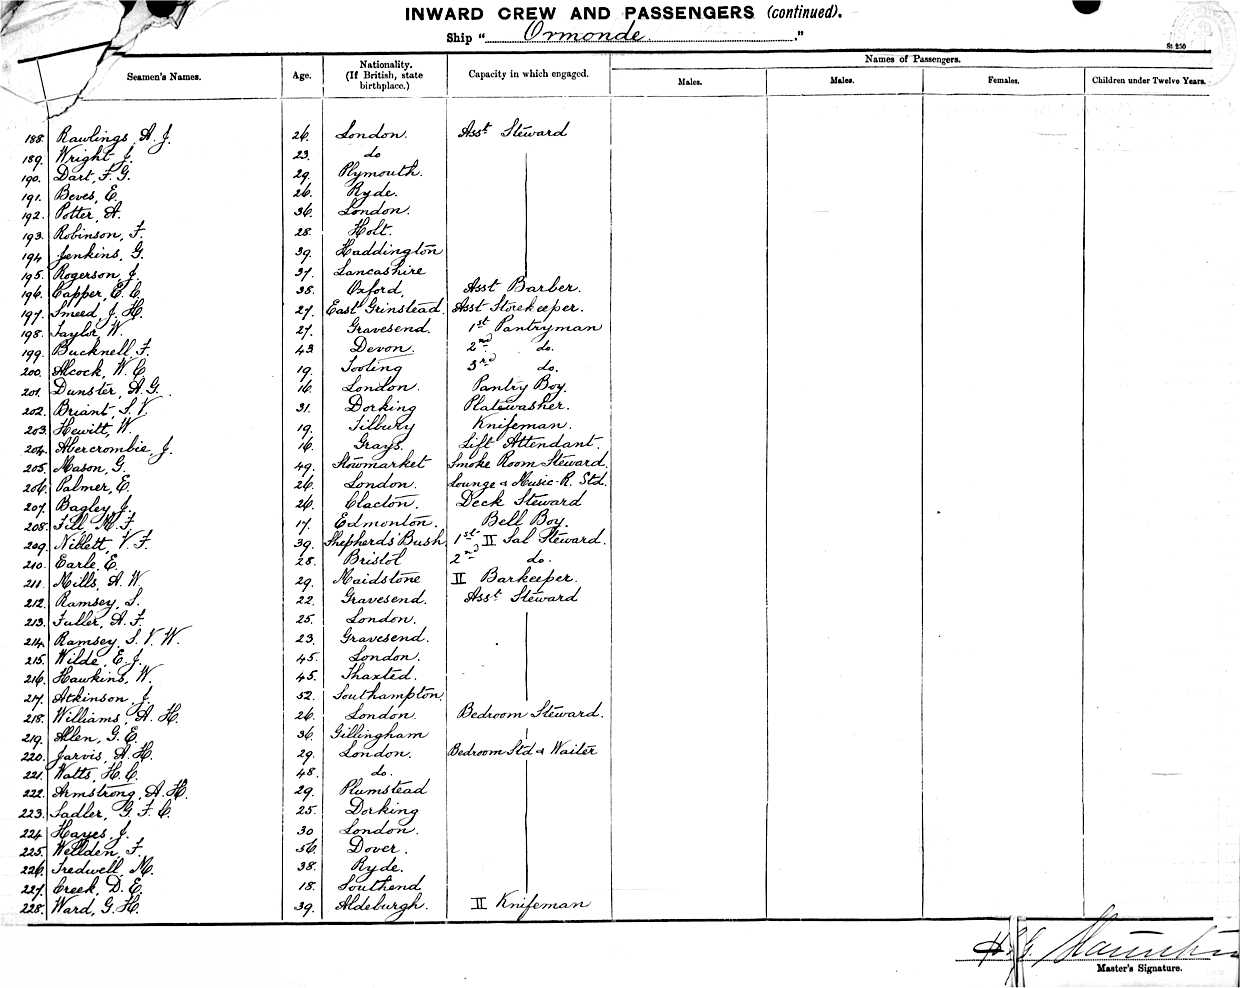 INWARD CREW AND PASSENGERS (continued).
Ship "Ormonde."
St 250
Seamen's Names. Age. Nationality. (If British, state birthplace.) Capacity in which engaged. Names of Passengers.
Males. Males. Females. Children under Twelve Years.
188. Rawlings, A. J. 26. London. Asst Steward
189. Wright J. 23. do
190. Dart, F. G. 29. Plymouth.
191. Beves, E. 26. Ryde.
192. Potter, A. 36. London.
193. Robinson, F. 28. Holt.
194. Jenkins, G. 39. Haddington
195. Rogerson, J. 37. Lancashire
196. Capper, E. C. 38. Oxford, Asst Barber.
197. Smeed, J. H. 27. East Grinstead. Asst Storekeeper.
198. Taylor W. 27. Gravesend. 1st Pantryman
199. Bucknell F. 43 Devon. 2nd do.
200. Alcock, W. C. 19. Tooting 3rd do.
201. Dunster, A. G. 16. London. Pantry Boy.
202. Briant S. V. 31. Dorking Platewasher.
203. Hewitt, W. 19. Tilbury Knifeman.
204. Abercrombie, J. 16. Grays. Lift Attendant.
205. Mason, G. 49. Stowmarket Smoke Room Steward.
206. Palmer, E. 26. London. Lounge & Music-R. Std.
207. Bagley J. 26. Clacton. Deck Steward
208. Till M. F. 17. Edmonton. Bell Boy.
209. Nillett, V. F. 39. Shepherds' Bush 1st II Sal Steward.
210. Earle, E. 28. Bristol 2nd do.
211. Mills, A. W. 29. Maidstone II Barkeeper.
212. Ramsey, S. 22. Gravesend. Asst Steward
213. Fuller, A. F. 25. London.
214. Ramsey, S. V. W. 23. Gravesend.
215. Wilde, E. J. 45. London.
216. Hawkins, W. 45. Thaxted.
217. Atkinson J. 52. Southampton.
218. Williams, A. H. 26. London. Bedroom Steward.
219. Allen, G. E. 36. Gillingham
220. Jarvis, A. H. 29. London. Bedroom Std & Waiter
221. Watts, H. C. 48. do.
222. Armstrong, A. H. 29. Plumstead
223. Sadler, G. F. C. 25. Dorking
224. Hayes, J. 30 London.
225. Wellden, F. 56. Dover.
226. Tredwell, M. 38. Ryde.
227. Creek, D. E. 18. Southend
228. Ward, G. H. 39. Aldeburgh. II Knifeman
Master's Signature.